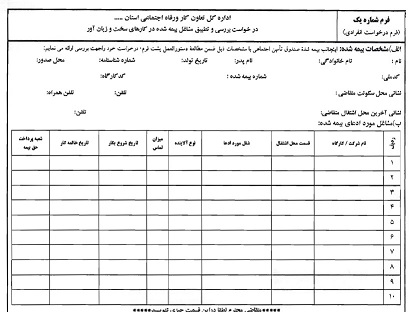 فرم شماره یک
(فرم درخواست انفرادی)
اداره کل تعاون کار ورفاه اجتماعی استان .....
درخواست بررسی و تطبیق مشاغل بیمه شده در کارهای سخت و زیان آور
الف) مشخصات بیمه شده: اینجانب بیمه شده صندوق تأمین اجتماعی با مشخصات ذیل ضمن مطالعه دستورالعمل پشت فرم، درخواست خود راجهت بررسی ارائه می نمایم:
نام : نام خانوادگی: نام پدر: تاریخ تولد: شماره شناسنامه: محل صدور:
کدملی: شماره بیمه شده : کدکارگاه:
نشانی محل سکونت متقاضی: تلفن: تلفن همراه:
نشانی آخرین محل اشتغال متقاضی: تلفن:
ب) مشاغل مورد ادعای بیمه شده:
ردیف نام شرکت / کارگاه قسمت محل اشتغال شغل مورد ادعا نوع آلاینده میزان تماس تاریخ شروع بکار تاریخ خاتمه کار شعبه پرداخت حق بیمه
۱
۲
۳
۴
۵
۶
۷
۸
۹
۱۰
*****متقاضی محترم لطفا دراین قسمت چیزی ننویسید*****